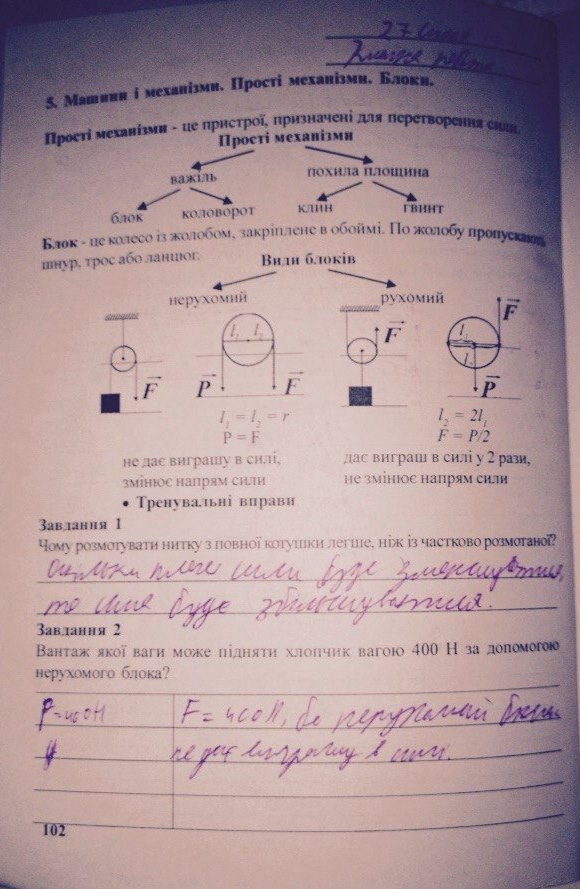 27 січня
Класна робота
5. Машини і механізми. Прості механізми. Блоки.
Прості механізми - це пристрої, призначені для перетворення сили.
Прості механізми
важіль похила площина
блок коловорот клин гвинт
Блок - це колесо із жолобом, закріплене в обоймі. По жолобу пропускають
шнур, трос або ланцюг. Види блоків
нерухомий рухомий
F P l₁ l₂ F F l₁ l₂ P F
l₁ = l₂ = r l₂ = 2l₁
P = F F = P/2
не дає виграшу в силі, дає виграш в силі у 2 рази,
змінює напрям сили не змінює напрям сили
• Тренувальні вправи
Завдання 1
Чому розмотувати нитку з повної котушки легше, ніж із частково розмотаної?
Оскільки плече сили буде зменшуватися,
то сила буде збільшуватися.
Завдання 2
Вантаж якої ваги може підняти хлопчик вагою 400 Н за допомогою
нерухомого блока?
P=400H F = 400H, бо нерухомий блок
не дає виграшу в силі.
102